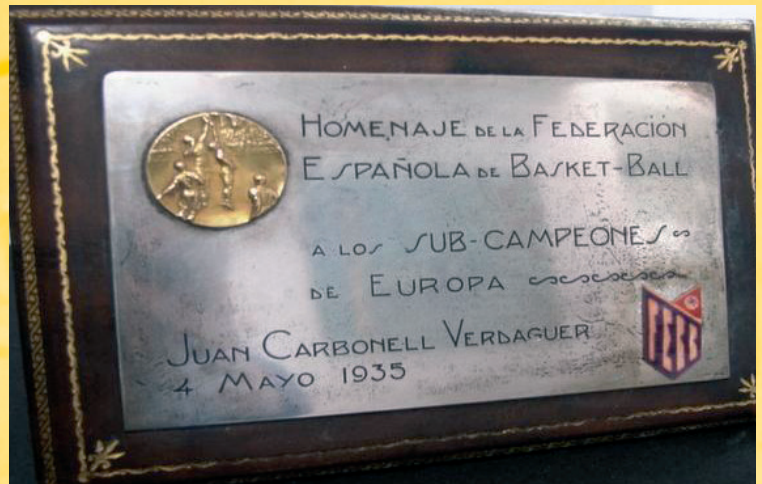 HOMENAJE DE LA FEDERACIÓN
ESPAÑOLA DE BASKET-BALL
A LOS SUB-CAMPEONES
DE EUROPA
JUAN CARBONELL VERDAGUER
4 MAYO 1935